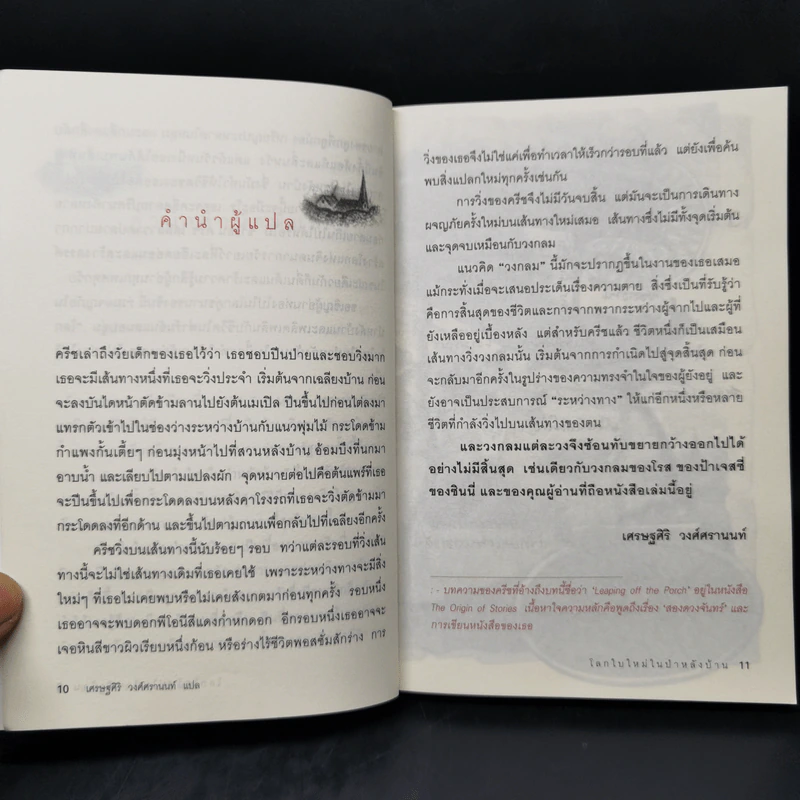 คำนำผู้แปล
ครีชเล่าถึงวัยเด็กของเธอไว้ว่า เธอชอบปีนป่ายและชอบวิ่งมาก
เธอจะมีเส้นทางหนึ่งที่เธอจะวิ่งประจำ เริ่มต้นจากเฉลียงบ้าน ก่อน
จะลงบันไดหน้าตัดข้ามลานไปยังต้นเมเปิล ปีนขึ้นไปก่อนไต่ลงมา
แทรกตัวเข้าไปในช่องว่างระหว่างบ้านกับแนวพุ่มไม้ กระโดดข้าม
กำแพงกั้นเตี้ยๆ ก่อนมุ่งหน้าไปที่สวนหลังบ้าน อ้อมบึงที่นกมา
อาบน้ำ และเลียบไปตามแปลงผัก จุดหมายต่อไปคือต้นแพร์ที่เธอ
จะปีนขึ้นไปเพื่อกระโดดลงบนหลังคาโรงรถที่เธอจะวิ่งตัดข้ามมา
กระโดดลงที่อีกด้าน และขึ้นไปตามถนนเพื่อกลับไปที่เฉลียงอีกครั้ง
ครีชวิ่งบนเส้นทางนี้นับร้อยๆ รอบ ทว่าแต่ละรอบที่วิ่งเส้น
ทางนี้จะไม่ใช่เส้นทางเดิมที่เธอเคยใช้ เพราะระหว่างทางจะมีสิ่ง
ใหม่ๆ ที่เธอไม่เคยพบหรือไม่เคยสังเกตมาก่อนทุกครั้ง รอบหนึ่ง
เธออาจจะพบดอกพีโอนีสีแดงก่ำหกดอก อีกรอบหนึ่งเธออาจจะ
เจอหินสีขาวผิวเรียบหนึ่งก้อน หรือร่างไร้ชีวิตพอสซั่มสักร่าง การ
10 เศรษฐศิริ วงศ์ศรานนท์ แปล
วิ่งของเธอจึงไม่ใช่แค่เพื่อทำเวลาให้เร็วกว่ารอบที่แล้ว แต่ยังเพื่อค้น
พบสิ่งแปลกใหม่ทุกครั้งเช่นกัน
การวิ่งของครีชจึงไม่มีวันจบสิ้น แต่มันจะเป็นการเดินทาง
ผจญภัยครั้งใหม่บนเส้นทางใหม่เสมอ เส้นทางซึ่งไม่มีทั้งจุดเริ่มต้น
และจุดจบเหมือนกับวงกลม
แนวคิด "วงกลม" นี้มักจะปรากฏขึ้นในงานของเธอเสมอ
แม้กระทั่งเมื่อจะเสนอประเด็นเรื่องความตาย สิ่งซึ่งเป็นที่รับรู้ว่า
คือการสิ้นสุดของชีวิตและการจากพรากระหว่างผู้จากไปและผู้ที่
ยังเหลืออยู่เบื้องหลัง แต่สำหรับครีชแล้ว ชีวิตหนึ่งก็เป็นเสมือน
เส้นทางวิ่งวงกลมนั้น เริ่มต้นจากการกำเนิดไปสู่จุดสิ้นสุด ก่อน
จะกลับมาอีกครั้งในรูปร่างของความทรงจำในใจของผู้ยังอยู่ และ
ยังอาจเป็นประสบการณ์ "ระหว่างทาง" ให้แก่อีกหนึ่งหรือหลาย
ชีวิตที่กำลังวิ่งไปบนเส้นทางของตน
และวงกลมแต่ละวงจึงซ้อนทับขยายกว้างออกไปได้
อย่างไม่มีสิ้นสุด เช่นเดียวกับวงกลมของโรส ของป้าเจสซี่
ของซินนี่ และของคุณผู้อ่านที่ถือหนังสือเล่มนี้อยู่
เศรษฐศิริ วงศ์ศรานนท์
:- บทความของครีชที่อ้างถึงบทนี้ชื่อว่า 'Leaping off the Porch' อยู่ในหนังสือ
The Origin of Stories เนื้อหาใจความหลักคือพูดถึงเรื่อง 'สองดวงจันทร์' และ
การเขียนหนังสือของเธอ
โลกใบใหม่ในป่าหลังบ้าน 11